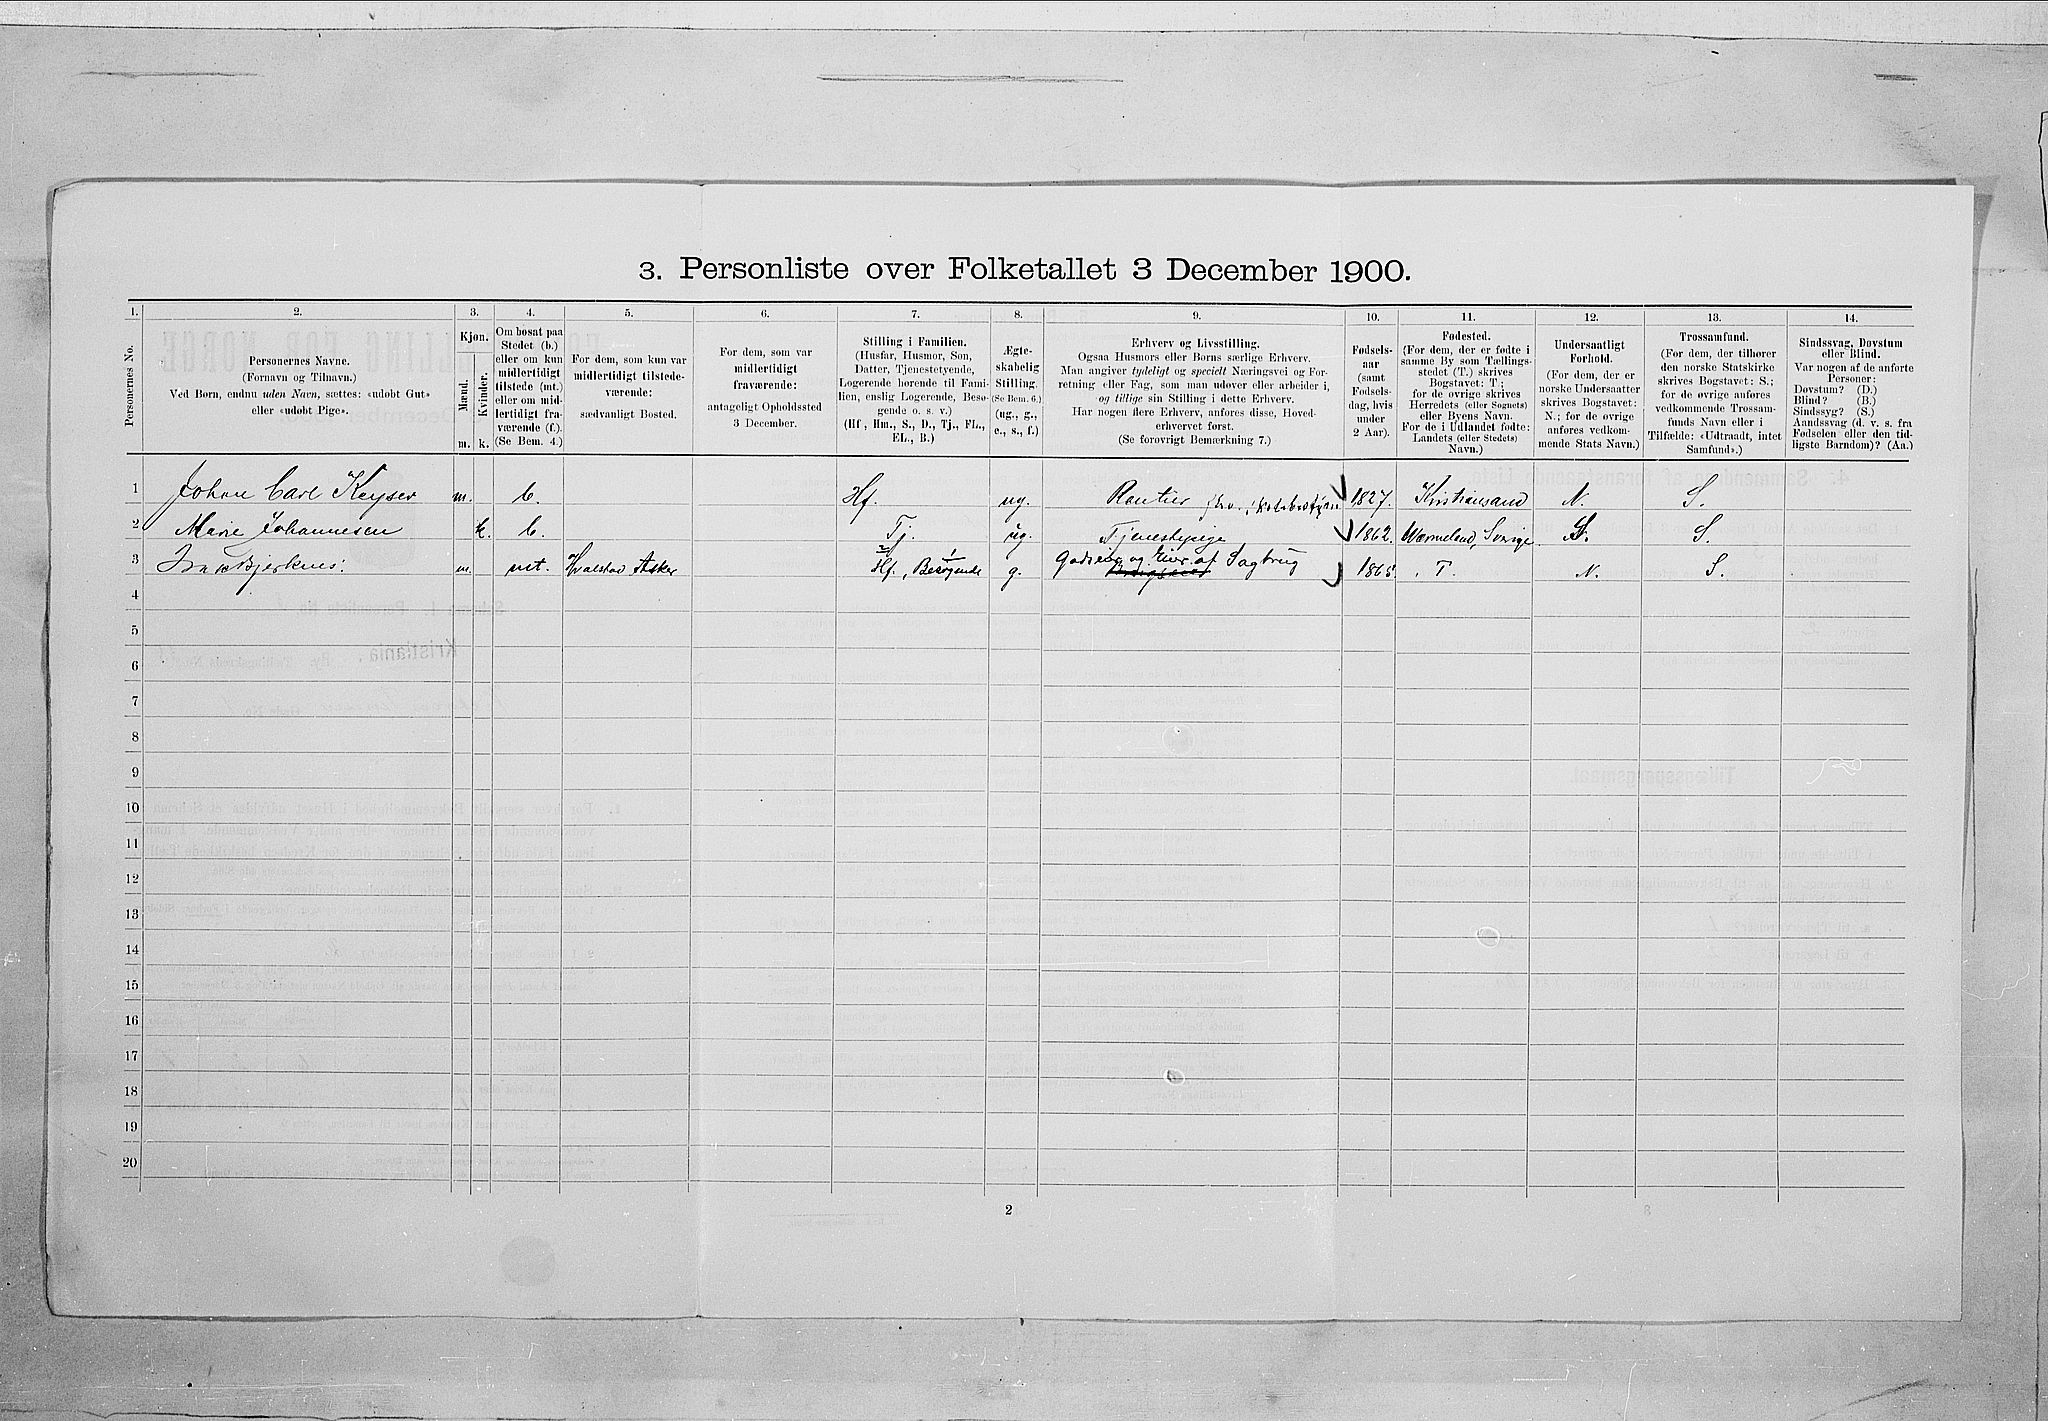 3. Personliste over Folketallet 3 December 1900.
1. 2. 3. 4. 5. 6. 7. 8. 9. 10. 11. 12. 13. 14.
Personernes No.
Personernes Navne.
(Fornavn og Tilnavn.)
Ved Børn, endnu uden Navn, sættes: «udøbt Gut»
eller «udøbt Pige».
Kjøn.
Mænd.
Kvinder.
m. k.
Om bosat paa
Stedet (b.)
eller om kun
midlertidigt
tilstede (mt.)
eller om mid-
lertidigt fra-
værende (f.).
(Se Bem. 4.)
For dem, som kun var
midlertidigt tilstede-
værende:
sædvanligt Bosted.
For dem, som var
midlertidigt
fraværende:
antageligt Opholdssted
3 December.
Stilling i Familien.
(Husfar, Husmor, Søn,
Datter, Tjenestetyende,
Logerende hørende til Fami-
lien, enslig Logerende, Besø-
gende o. s. v.)
(Hf, Hm., S., D., Tj., FL.,
EL., B.)
Ægte-
skabelig
Stilling.
(Se Bem. 6.)
(ug., g.,
e., s., f.)
Erhverv og Livsstilling.
Ogsaa Husmors eller Børns særlige Erhverv.
Man angiver tydeligt og specielt Næringsvei og For-
retning eller Fag, som man udøver eller arbeider i,
og tillige sin Stilling i dette Erhverv.
Har nogen flere Erhverv, anføres disse, Hoved-
erhvervet først.
(Se forøvrigt Bemærkning 7.)
Fødsels-
aar
(samt
Fødsels-
dag, hvis
under
2 Aar).
Fødested.
(For dem, der er fødte i
samme By som Tællings-
stedet (T.) skrives
Bogstavet: T.;
for de øvrige skrives
Herredets (eller Sognets)
eller Byens Navn.
For de i Udlandet fødte:
Landets (eller Stedets)
Navn.)
Undersaatligt
Forhold.
(For dem, der er
norske Undersaatter
skrives Bogstavet:
N.; for de øvrige
anføres vedkom-
mende Stats Navn.)
Trossamfund.
(For dem, der tilhører
den norske Statskirke
skrives Bogstavet: S.;
for de øvrige anføres
vedkommende Trossam-
funds Navn eller i
Tilfælde: «Udtraadt, intet
Samfund».)
Sindssvag, Døvstum
eller Blind.
Var nogen af de anførte
Personer:
Døvstum? (D.)
Blind? (B.)
Sindssyg? (S.)
Aandssvag (d. v. s. fra
Fødselen eller den tid-
ligste Barndom)? (Aa.)
1 Johan Carl Keyser m. b. Hf. ug. Rentier 1827. Kristiansand N. S.
2 Marie Johannesen k. b. Tj. ug. Tjenestepige 1862. Wærmeland, Sverige S. S.
3 Bjerknes. m. mt. Hvalstad Asker Hf., Besøgende g. Godseier og Eier af Sagbrug 1865 T. N. S.
4
5
6
7
8
9
10
11
12
13
14
15
16
17
18
19
20
2